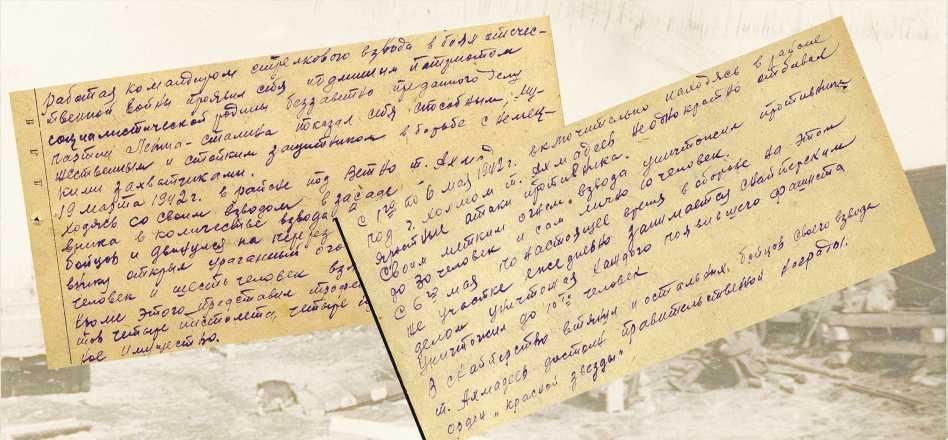 Работая командиром стрелкового взвода в боях отечес-
твенной войны проявил себя подлинным патриотом
социалистической родины беззаветно преданного делу
партии Ленина-Сталина показал себя способным, му-
жественным и стойким защитником в борьбе с немец-
кими захватчиками.
19 марта 1942 г. в районе под т. Ахмад
ходясь со своим взводом в засаде
вника в количестве взвода
бойцов и двинулся на перерез
внику открыл ураганный ого
человек и шесть человек взя
Кроме этого представил
тов четыре пистолета, четыре
ное имущество.
с 1го по 6 мая 1942 г. включительно находясь в районе
под г. Холмом т. Ахмадеев неоднократно отбивал
яростные атаки противника.
Своим метким огнем взвода уничтожил противника
до 30 человек и сам лично 10 человек.
С 6го мая по настоящее время в обороне на этом
же участке ежедневно занимается снайперским
делом уничтожая каждого появившего фашиста
уничтожил до 10ти человек
В снайперство втянул и остальных бойцов своего взвода
т. Ахмадеев достоин правительственной награды.
орден „Красной звезды".